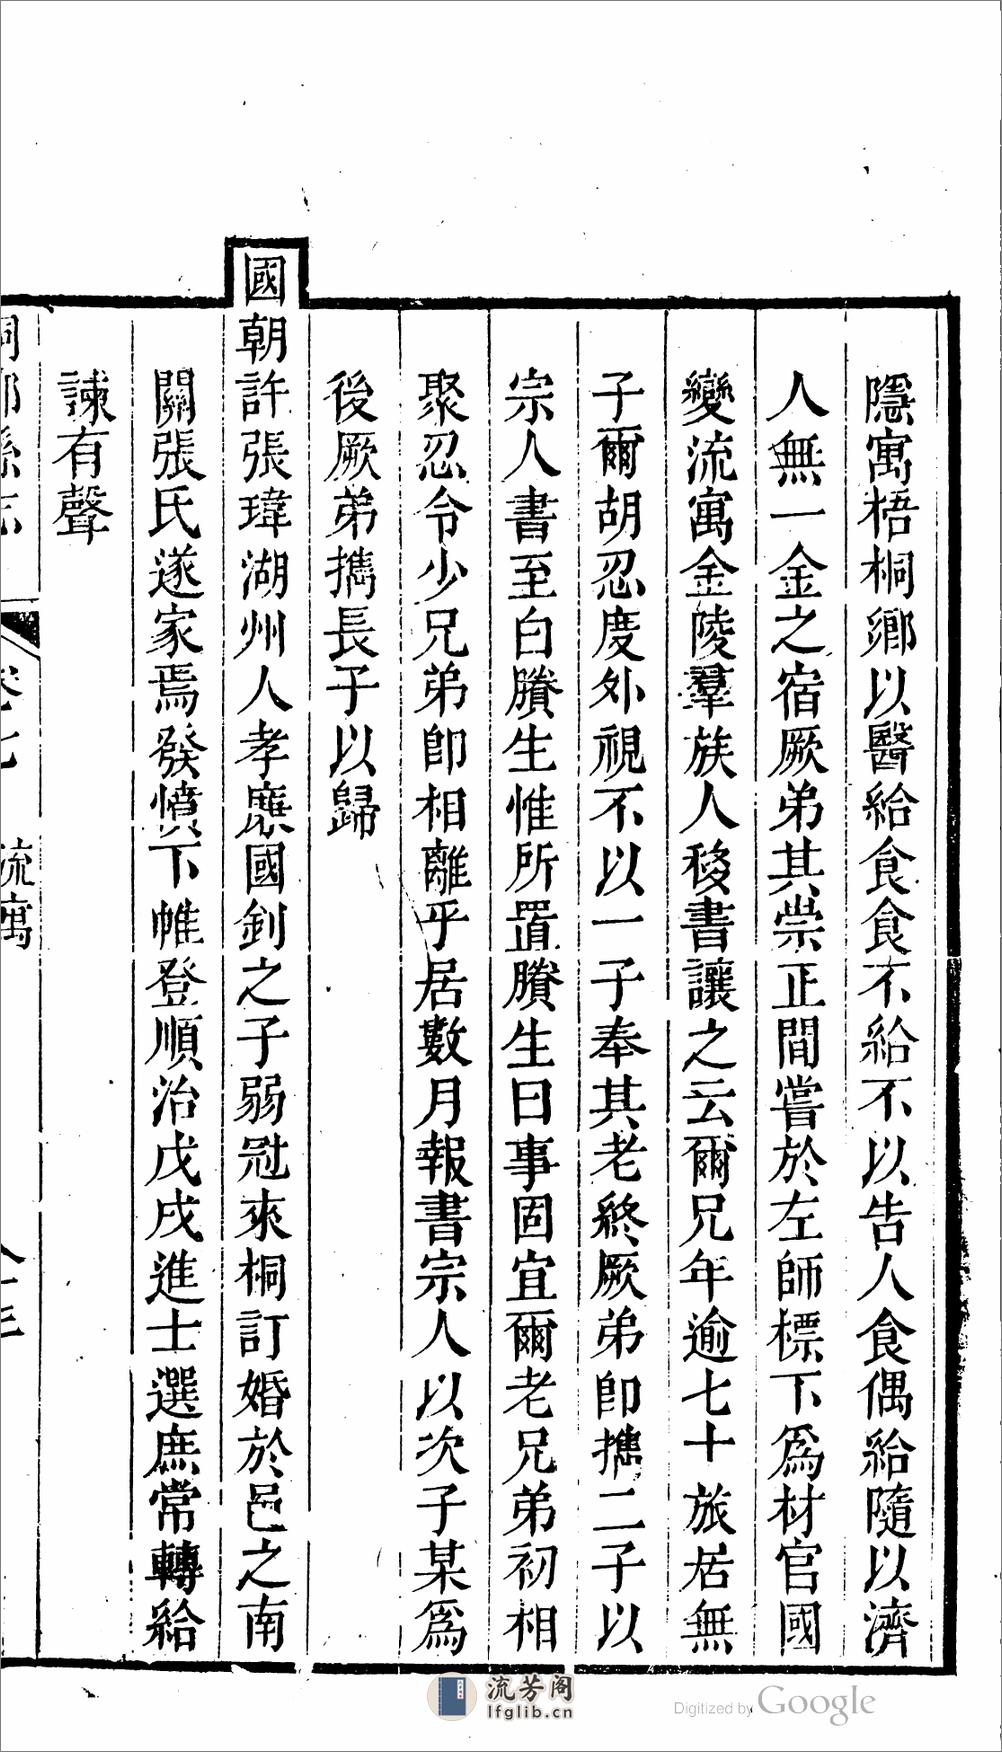 隱寓梧桐鄉以醫給食食不給不以告人食偶給隨以濟
人無一金之宿厥弟其崇正間嘗於左師標下爲材官國
變流寓金陵羣族人移書讓之云爾兄年逾七十旅居無
子爾胡忍度外視不以一子奉其老終厥弟卽攜二子以
宗人書至白賸生惟所置賸生曰事固宜爾老兄弟初相
聚忍令少兄弟卽相離乎居數月報書宗人以次子某爲
後厥弟攜長子以歸
國朝許張瑋湖州人孝廉國釗之子弱冠來桐訂婚於邑之南
關張氏遂家焉發憤下帷登順治戊戌進士選庶常轉給
諫有聲
桐鄉縣志 卷七 流寓
流芳阁
lfglib.cn
Digitized by Google